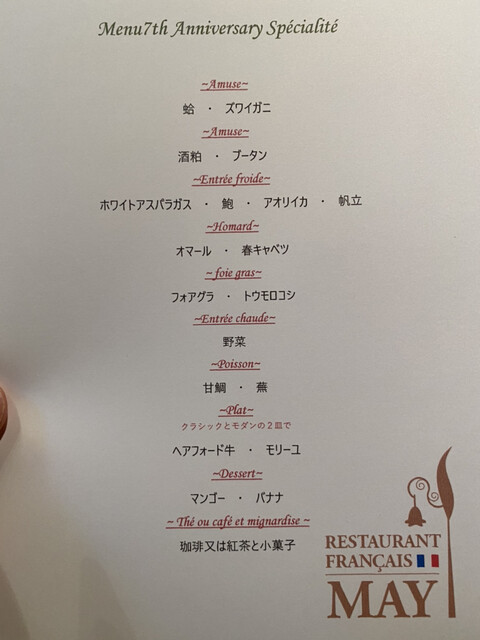 Menu7th Anniversary Spécialité
~Amuse~
蛤 ・ ズワイガニ
~Amuse~
酒粕 ・ ブータン
~Entrée froide~
ホワイトアスパラガス ・ 鮑 ・ アオリイカ ・ 帆立
~Homard~
オマール ・ 春キャベツ
~ foie gras~
フォアグラ ・ トウモロコシ
~Entrée chaude~
野菜
~Poisson~
甘鯛 ・ 蕪
~Plat~
クラシックとモダンの2皿で
ヘアフォード牛 ・ モリーユ
~Dessert~
マンゴー ・ バナナ
~ Thé ou café et mignardise ~
珈琲又は紅茶と小菓子
RESTAURANT
FRANÇAIS
MAY